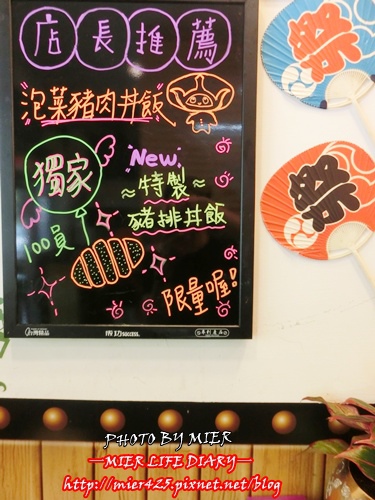 店長推薦
泡菜豬肉丼飯
獨家
New
特製
豬排丼飯
100員
限量喔!
祭
祭
PHOTO BY MIER
MIER LIFE DIARY
http://mier425.pixnet.net/blog